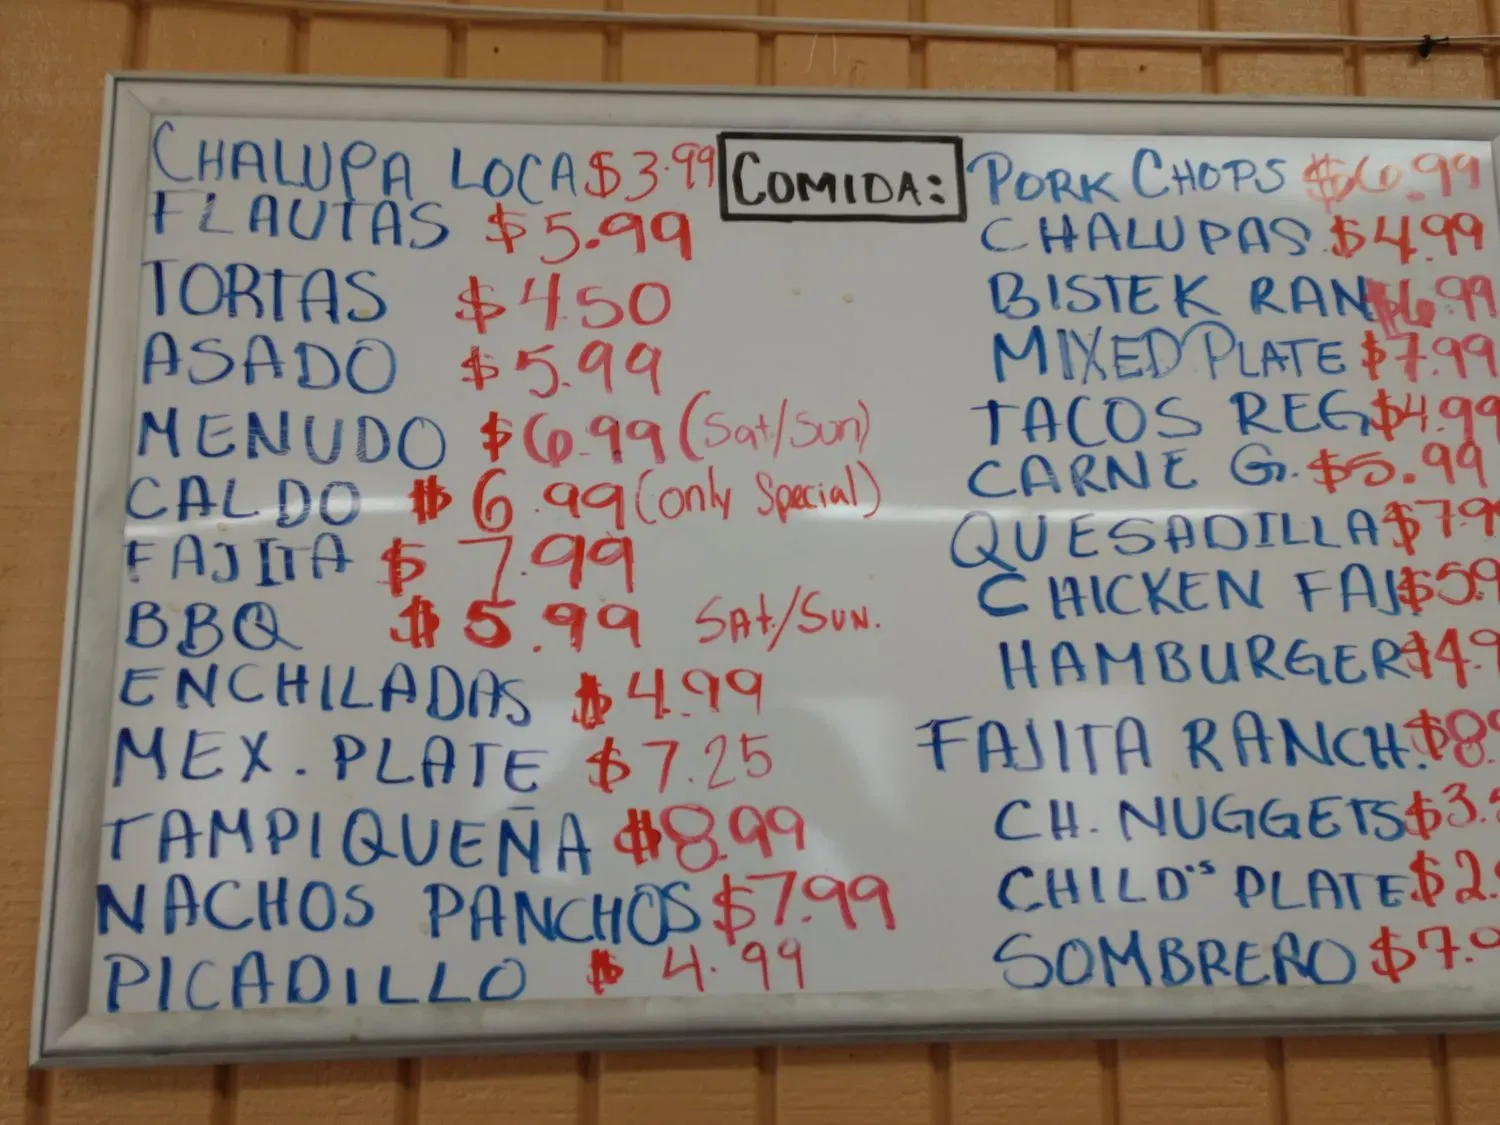 COMIDA:
CHALUPA LOCA $3.99
FLAUTAS $5.99
TORTAS $4.50
ASADO $5.99
MENUDO $6.99 (Sat/Sun)
CALDO $6.99 (only Special)
FAJITA $7.99
BBQ $5.99 SAT/SUN.
ENCHILADAS $4.99
MEX. PLATE $7.25
TAMPIQUEÑA $8.99
NACHOS PANCHOS $7.99
PICADILLO $4.99
PORK CHOPS $6.99
CHALUPAS $4.99
BISTEK RAN $6.99
MIXED PLATE $7.99
TACOS REG $4.99
CARNE G. $5.99
QUESADILLA $7.9
CHICKEN FAJ $5.9
HAMBURGER $4.9
FAJITA RANCH. $8.
CH. NUGGETS $3.
CHILD'S PLATE $2.
SOMBRERO $7.